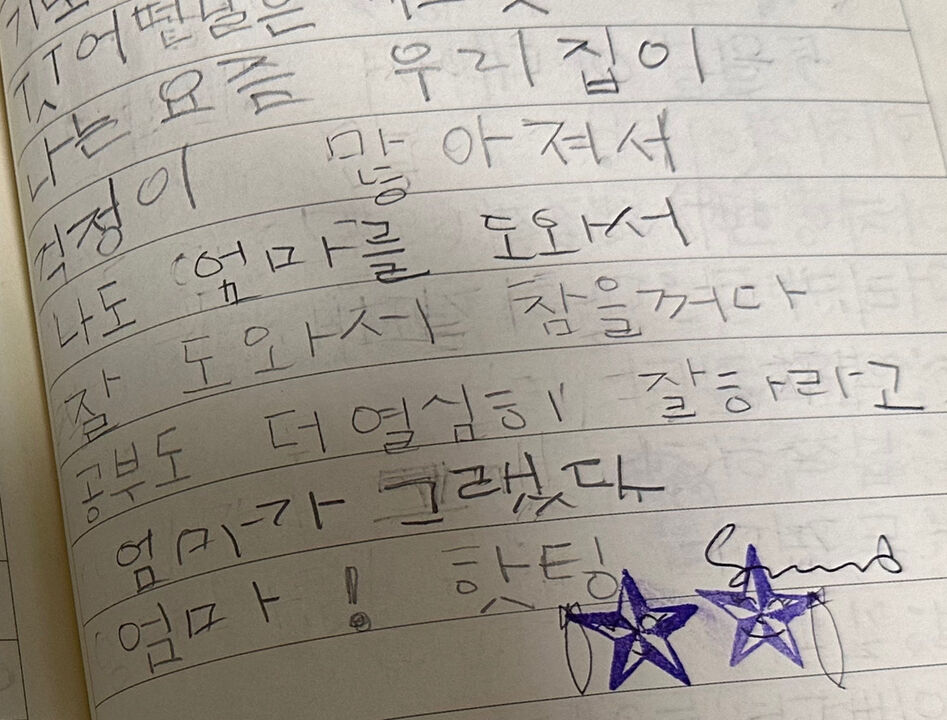 나는 요즘 우리집이
걱정이 많아져서
나도 엄마를 도와서
잘 도와서 참을꺼다
공부도 더 열심히 잘하라고
엄마가 그랫다
엄마! 핫팅